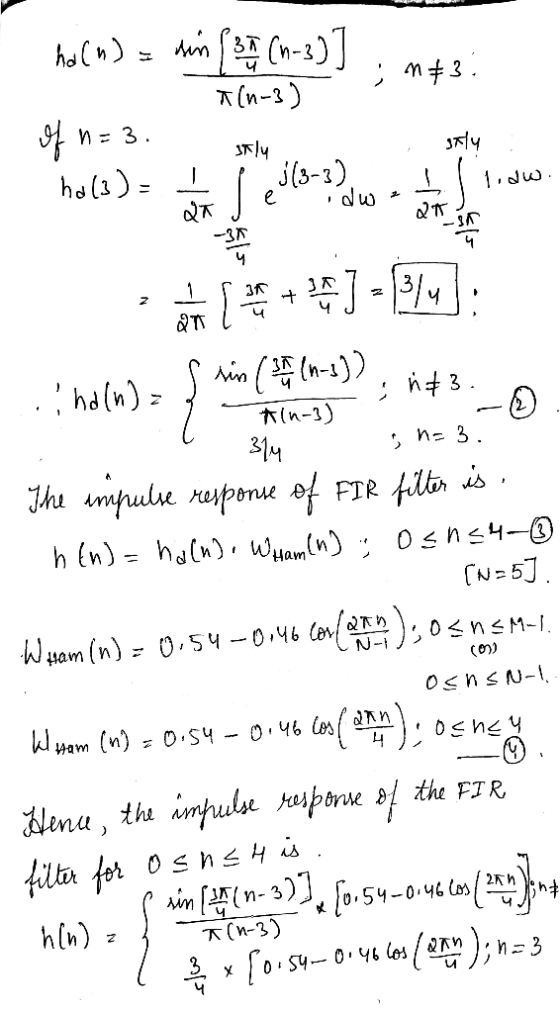 hd(n) = sin [3π/4 (n-3)] / π(n-3) ; n≠3.
If n = 3.
hd(3) = 1/2π ∫_{-3π/4}^{3π/4} e^{j(3-3)} . dω = 1/2π ∫_{-3π/4}^{3π/4} 1. dω.
= 1/2π [3π/4 + 3π/4] = 3/4 ;
∴ hd(n) = { sin (3π/4 (n-3)) / π(n-3) ; n≠3. — ②
3/4 ; n= 3.
The impulse response of FIR filter is.
h (n) = hd(n). WHam(n) ; 0 ≤ n ≤ 4 — ③
[N=5].
WHam (n) = 0.54 - 0.46 Cos(2πn/N-1) ; 0 ≤ n ≤ M-1.
(or)
0 ≤ n ≤ N-1.
WHam (n) = 0.54 - 0.46 Cos(2πn/4) ; 0 ≤ n ≤ 4
— ④.
Hence, the impulse response of the FIR
filter for 0 ≤ n ≤ 4 is.
h(n) = { sin [3π/4 (n-3)] / π(n-3) × [0.54-0.46 Cos (2πn/4)] ; n≠
3/4 × [0.54- 0.46 Cos (2πn/4) ; n=3